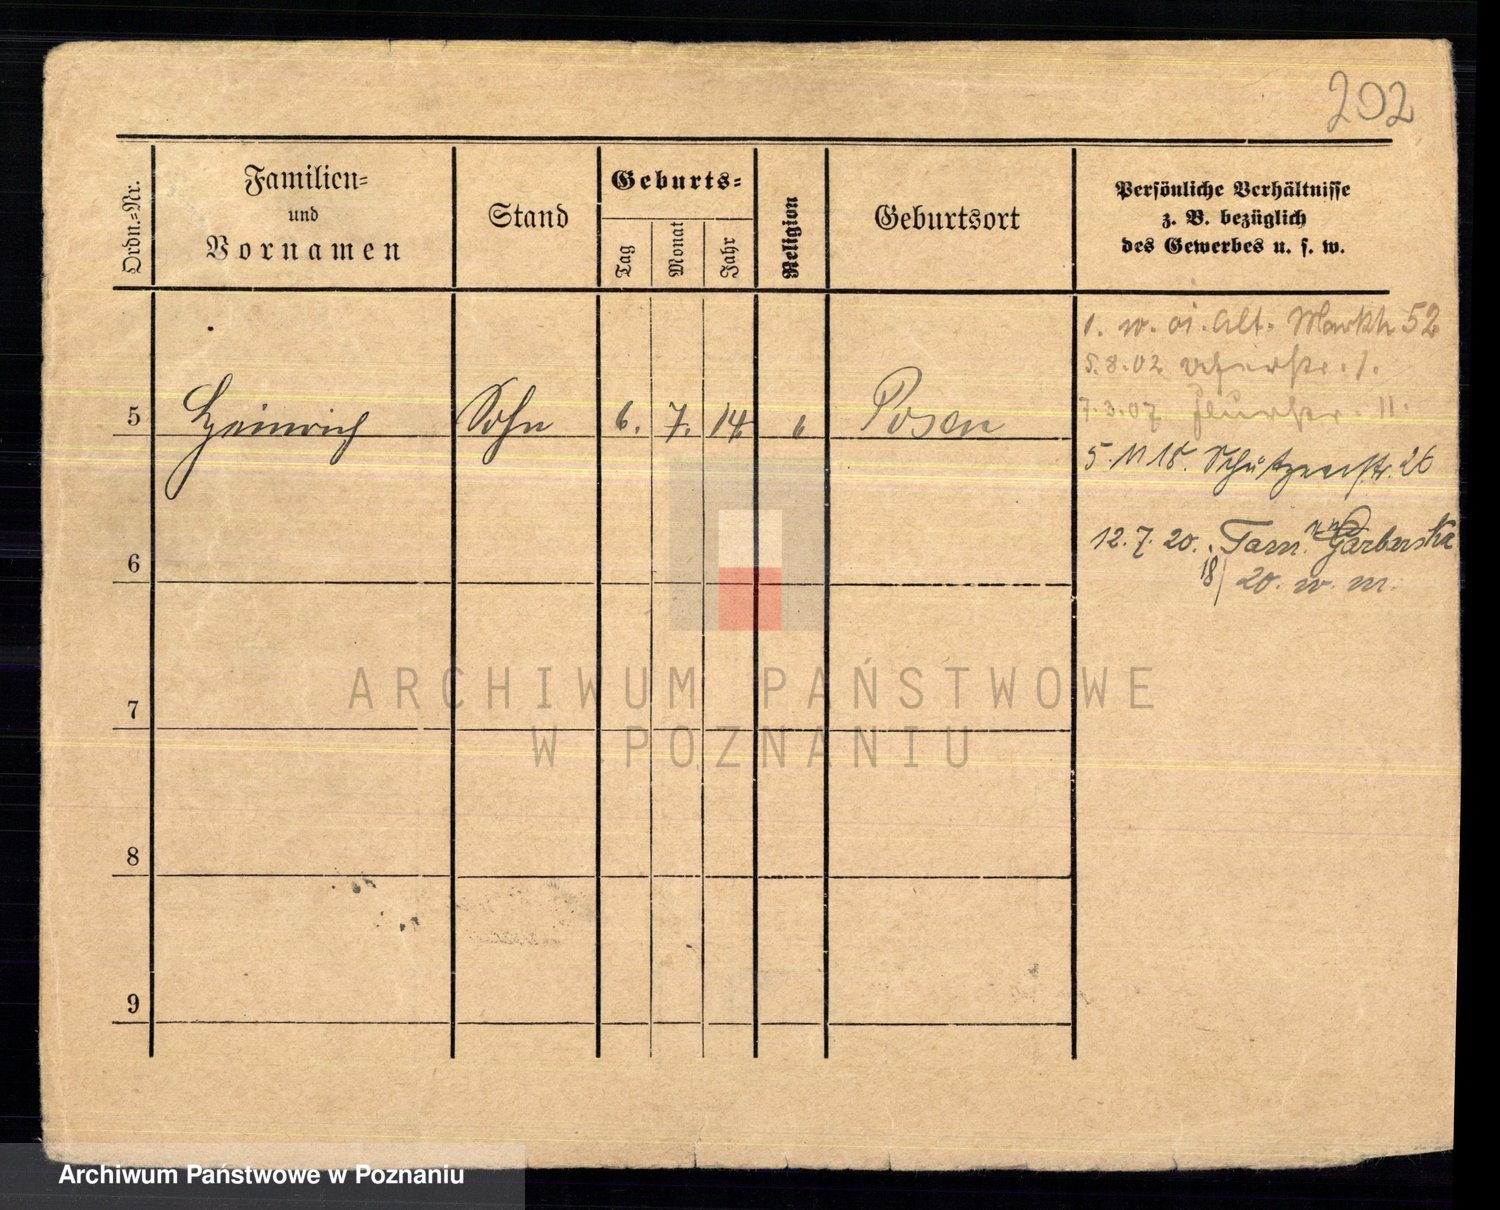 202
Ordn.-Nr.
Familien-
und
Vornamen
Stand
Geburts-
Tag
Monat
Jahr
Religion
Geburtsort
Persönliche Verhältnisse
z. B. bezüglich
des Gewerbes u. s. w.
5 Heinrich Sohn 6. 7. 14 " Posen
1. 10. 01. Alt. Markt 52
5.8.02
7.3.07 11.
5. 11 18. Schützenstr. 26
12. 7. 20. Garbarska
18/20. w. m.
6
7
8
9
ARCHIWUM PAŃSTWOWE
W POZNANIU
Archiwum Państwowe w Poznaniu